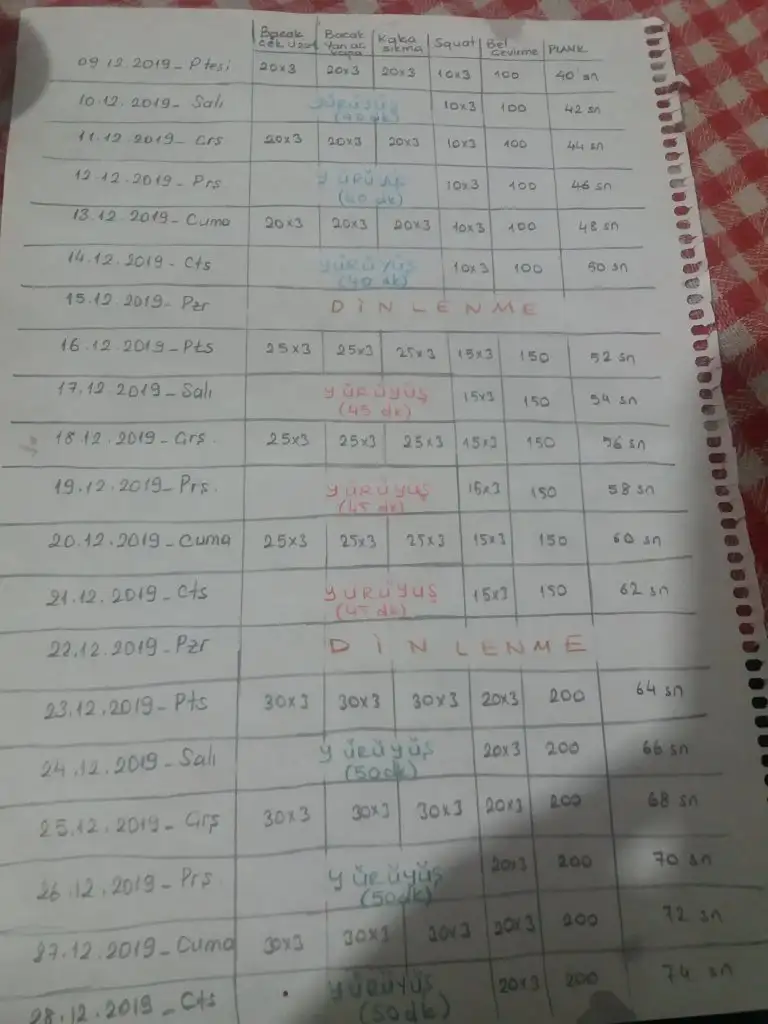 Bacak Bacak Kalça Squat Bel PLANK
çek uzat Yan aç sıkma Çevirme
kapa
09.12.2019 - Ptesi 20x3 20x3 20x3 10x3 100 40 sn
10.12.2019 - Salı Yürüyüş 10x3 100 42 sn
(40 dk)
11.12.2019 - Çrş 20x3 20x3 20x3 10x3 100 44 sn
12.12.2019 - Prş yürüyüş 10x3 100 46 sn
(40 dk)
13.12.2019 - Cuma 20x3 20x3 20x3 10x3 100 48 sn
14.12.2019 - Cts yürüyüş 10x3 100 50 sn
(40 dk)
15.12.2019 - Pzr DİNLENME
16.12.2019 - Pts 25x3 25x3 25x3 15x3 150 52 sn
17.12.2019 - Salı yürüyüş 15x3 150 54 sn
(45 dk)
18.12.2019 - Çrş. 25x3 25x3 25x3 15x3 150 56 sn
19.12.2019 - Prş. yürüyüş 15x3 150 58 sn
(45 dk)
20.12.2019 - Cuma 25x3 25x3 25x3 15x3 150 60 sn
21.12.2019 - Cts yürüyüş 15x3 150 62 sn
(45 dk)
22.12.2019 - Pzr DİNLENME
23.12.2019 - Pts 30x3 30x3 30x3 20x3 200 64 sn
24.12.2019 - Salı yürüyüş 20x3 200 66 sn
(50dk)
25.12.2019 - Çrş 30x3 30x3 30x3 20x3 200 68 sn
26.12.2019 - Prş. yürüyüş 20x3 200 70 sn
(50dk)
27.12.2019 - Cuma 30x3 30x3 30x3 20x3 200 72 sn
28.12.2019 - Cts yürüyüş 20x3 200 74 sn
(50dk)